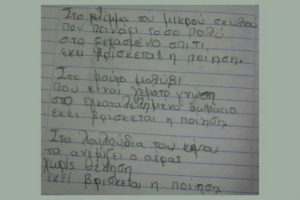 Στο βλέμμα του μικρού σκύλου
που πεινάει τόσο πολύ
στο ξεχασμένο σπίτι
εκεί βρίσκεται η ποίηση.
Στο μαύρο μολύβι
που είναι γεμάτο γνώση
στο εγκαταλελειμμένο δωμάτιο
εκεί βρίσκεται η ποίηση
Στα λουλούδια του
τα ανεμίζει ο αέρας
χωρίς θέληση
εκεί βρίσκεται η ποίηση